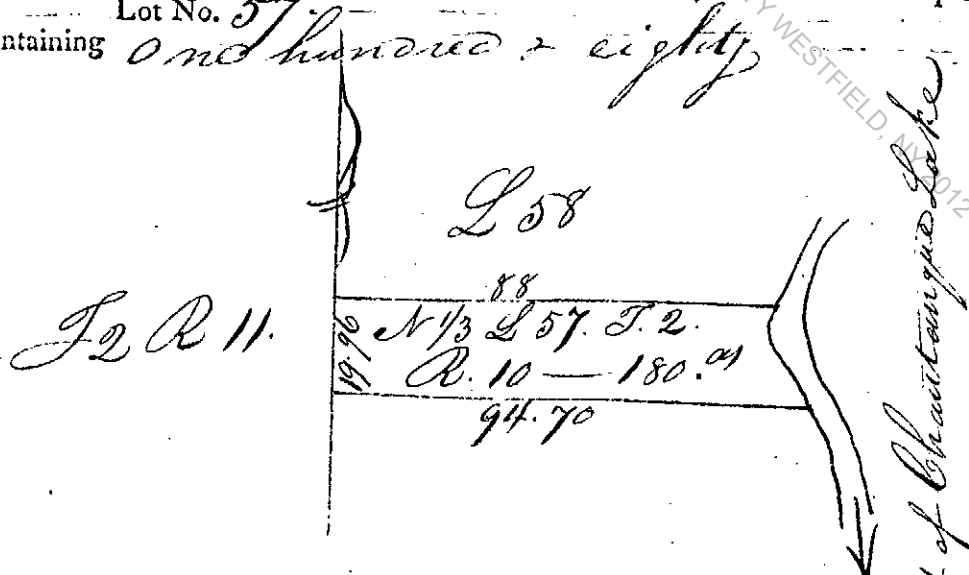 Lot No. 57.
ntaining One hundred & eighty
Y WESTFIELD, NY 2012
L 58
88
T2 R 11.
19.96
N 1/3 L 57. T. 2.
R. 10 — 180.as
94.70
of Chautauque Lake